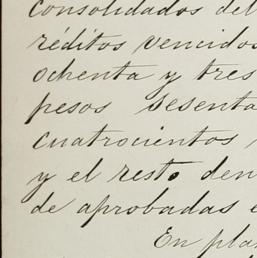 consolidados del
réditos vencidos
ochenta y tres
pesos sesenta
cuatrocientos
y el resto den
de aprobadas e
En pla